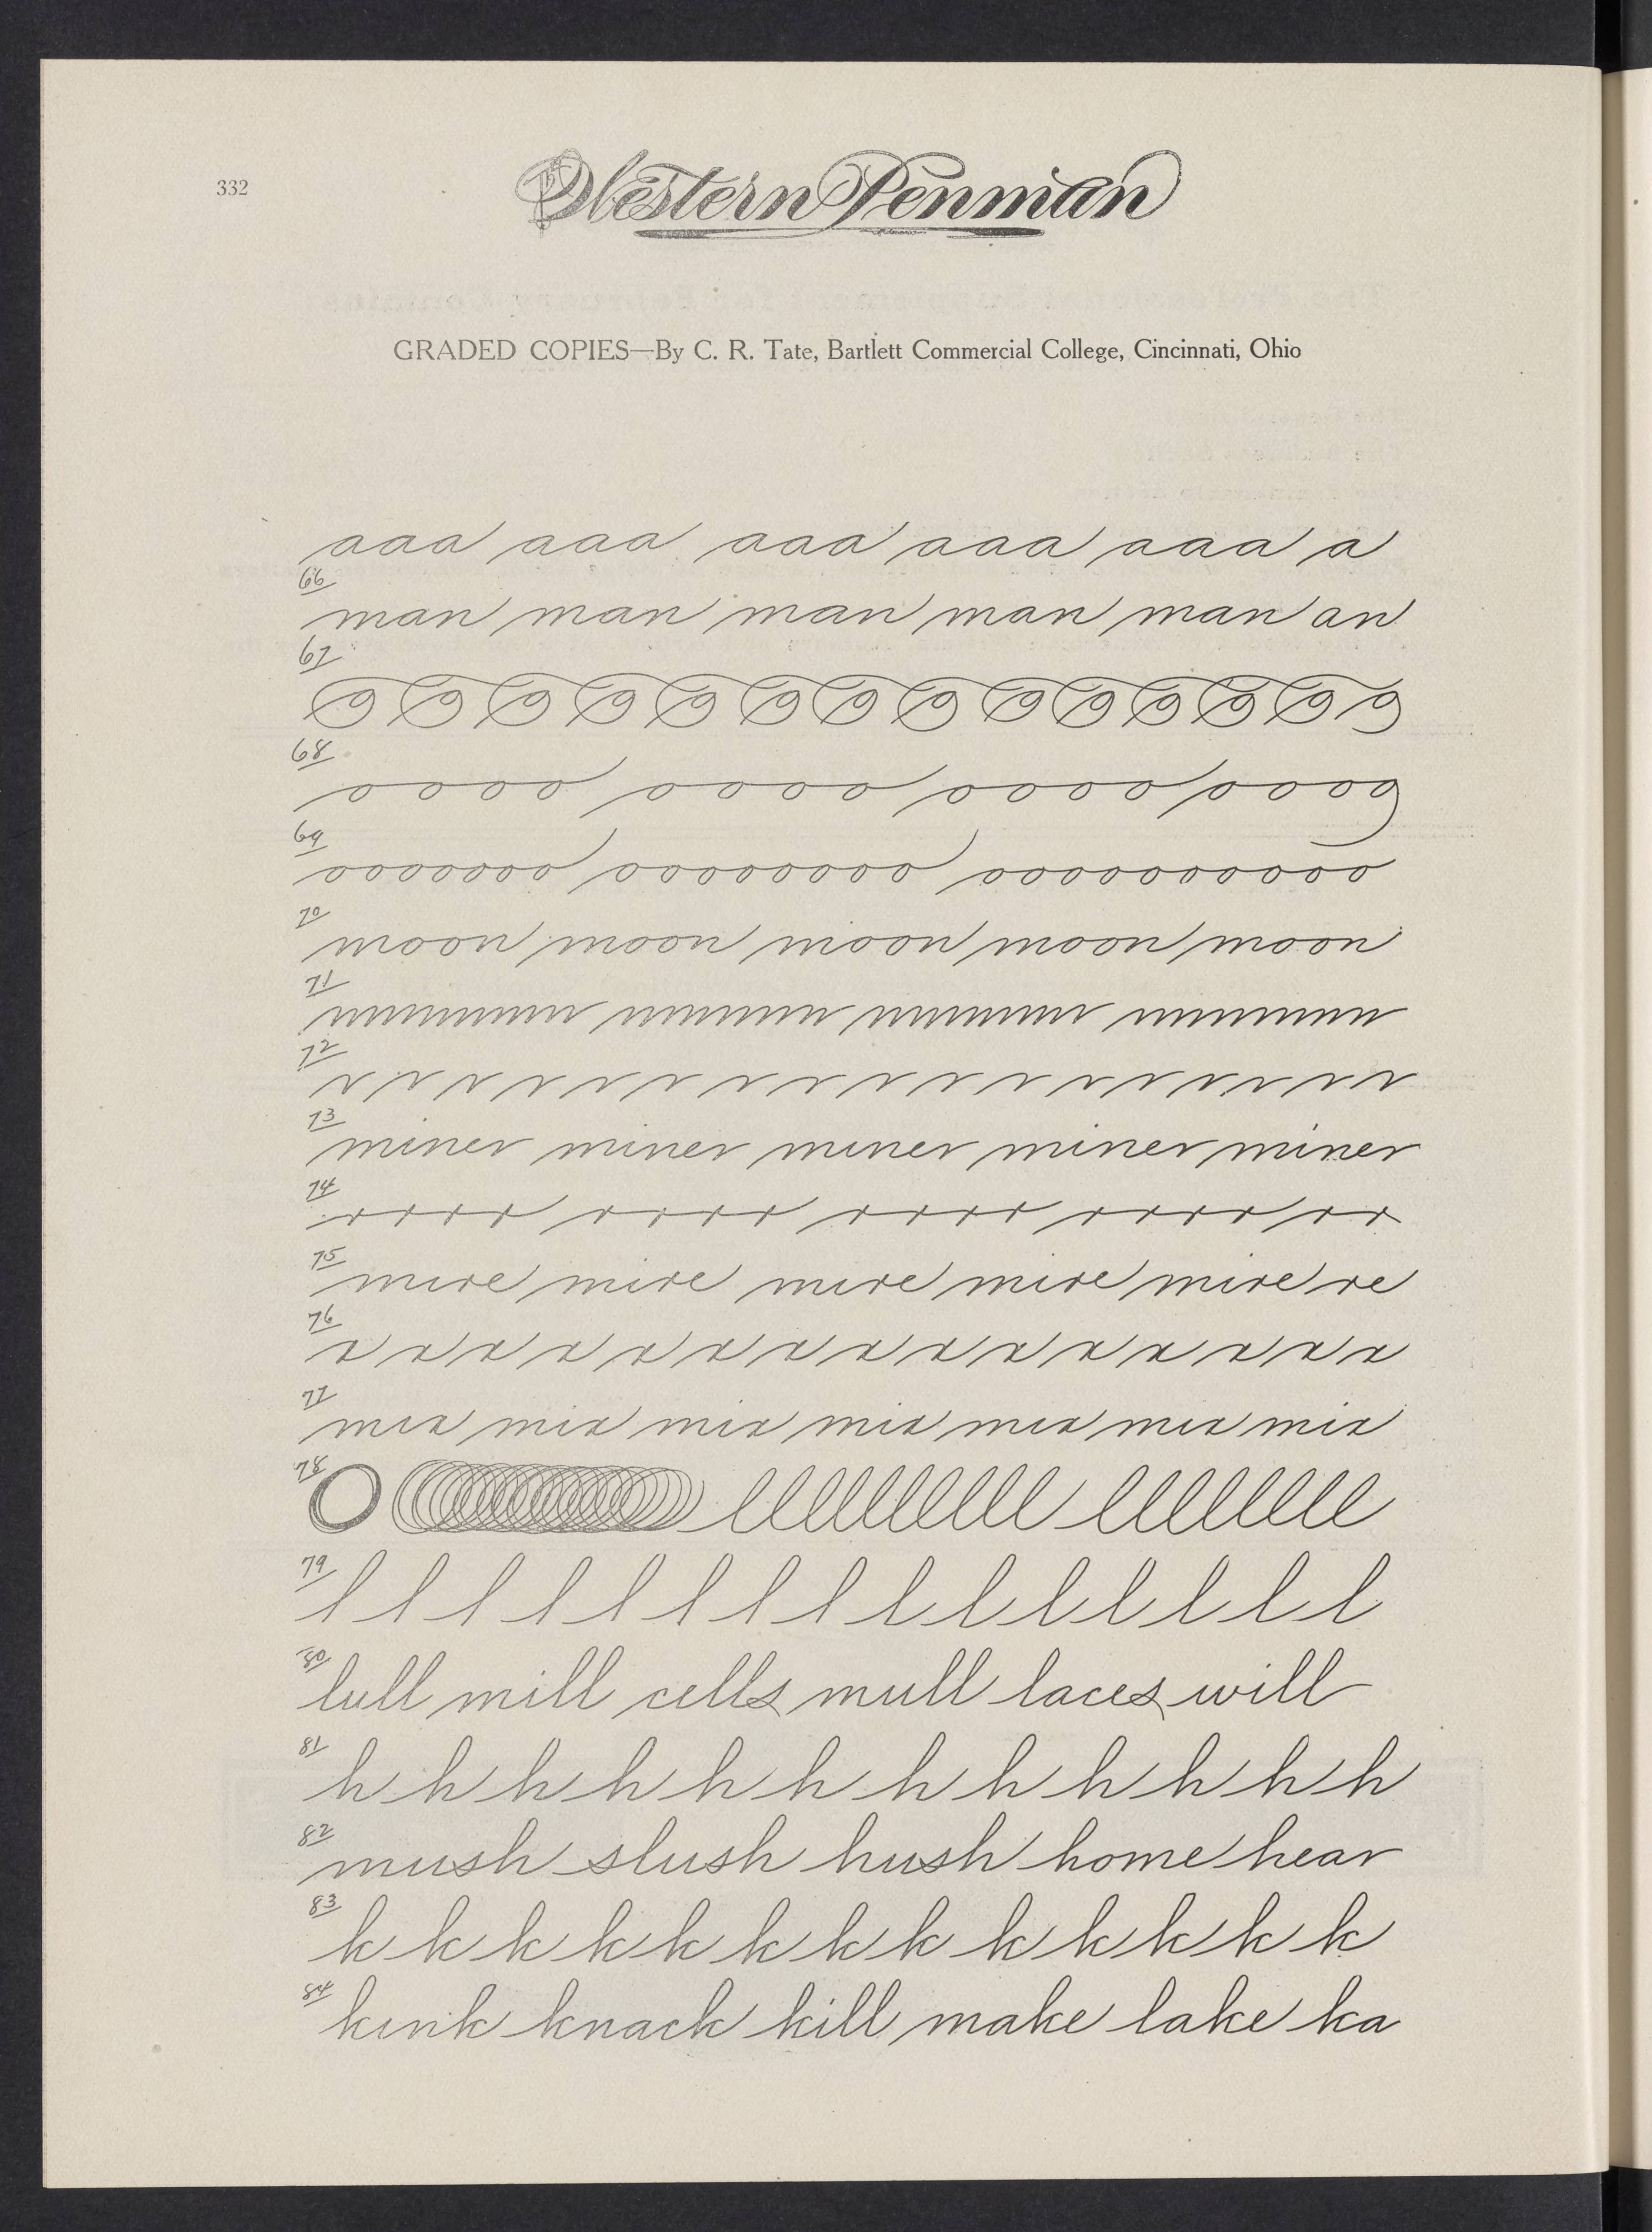 332
Western Penman
GRADED COPIES—By C. R. Tate, Bartlett Commercial College, Cincinnati, Ohio
aaa aaa aaa aaa aaa a
66
man man man man man an
67
68
o o o o o o o o o o o o o o o o o
69
ooooooo oooooooo ooooooooooo
70
moon moon moon moon moon
71
72
r r r r r r r r r r r r r r r r
73
miner miner miner miner miner
74
rrrr rrrr rrrr rrrr rr
75
mire mire mire mire mire re
76
x x x x x x x x x x x x x x x
77
mix mix mix mix mix mix mix
78
O lllllllll lllllllll
79
l l l l l l l l l l l l l l l
80
lull mill cells mull laces will
81
h h h h h h h h h h h h
82
mush slush hush home hear
83
k k k k k k k k k k k k k
84
kink knack kill make lake ka